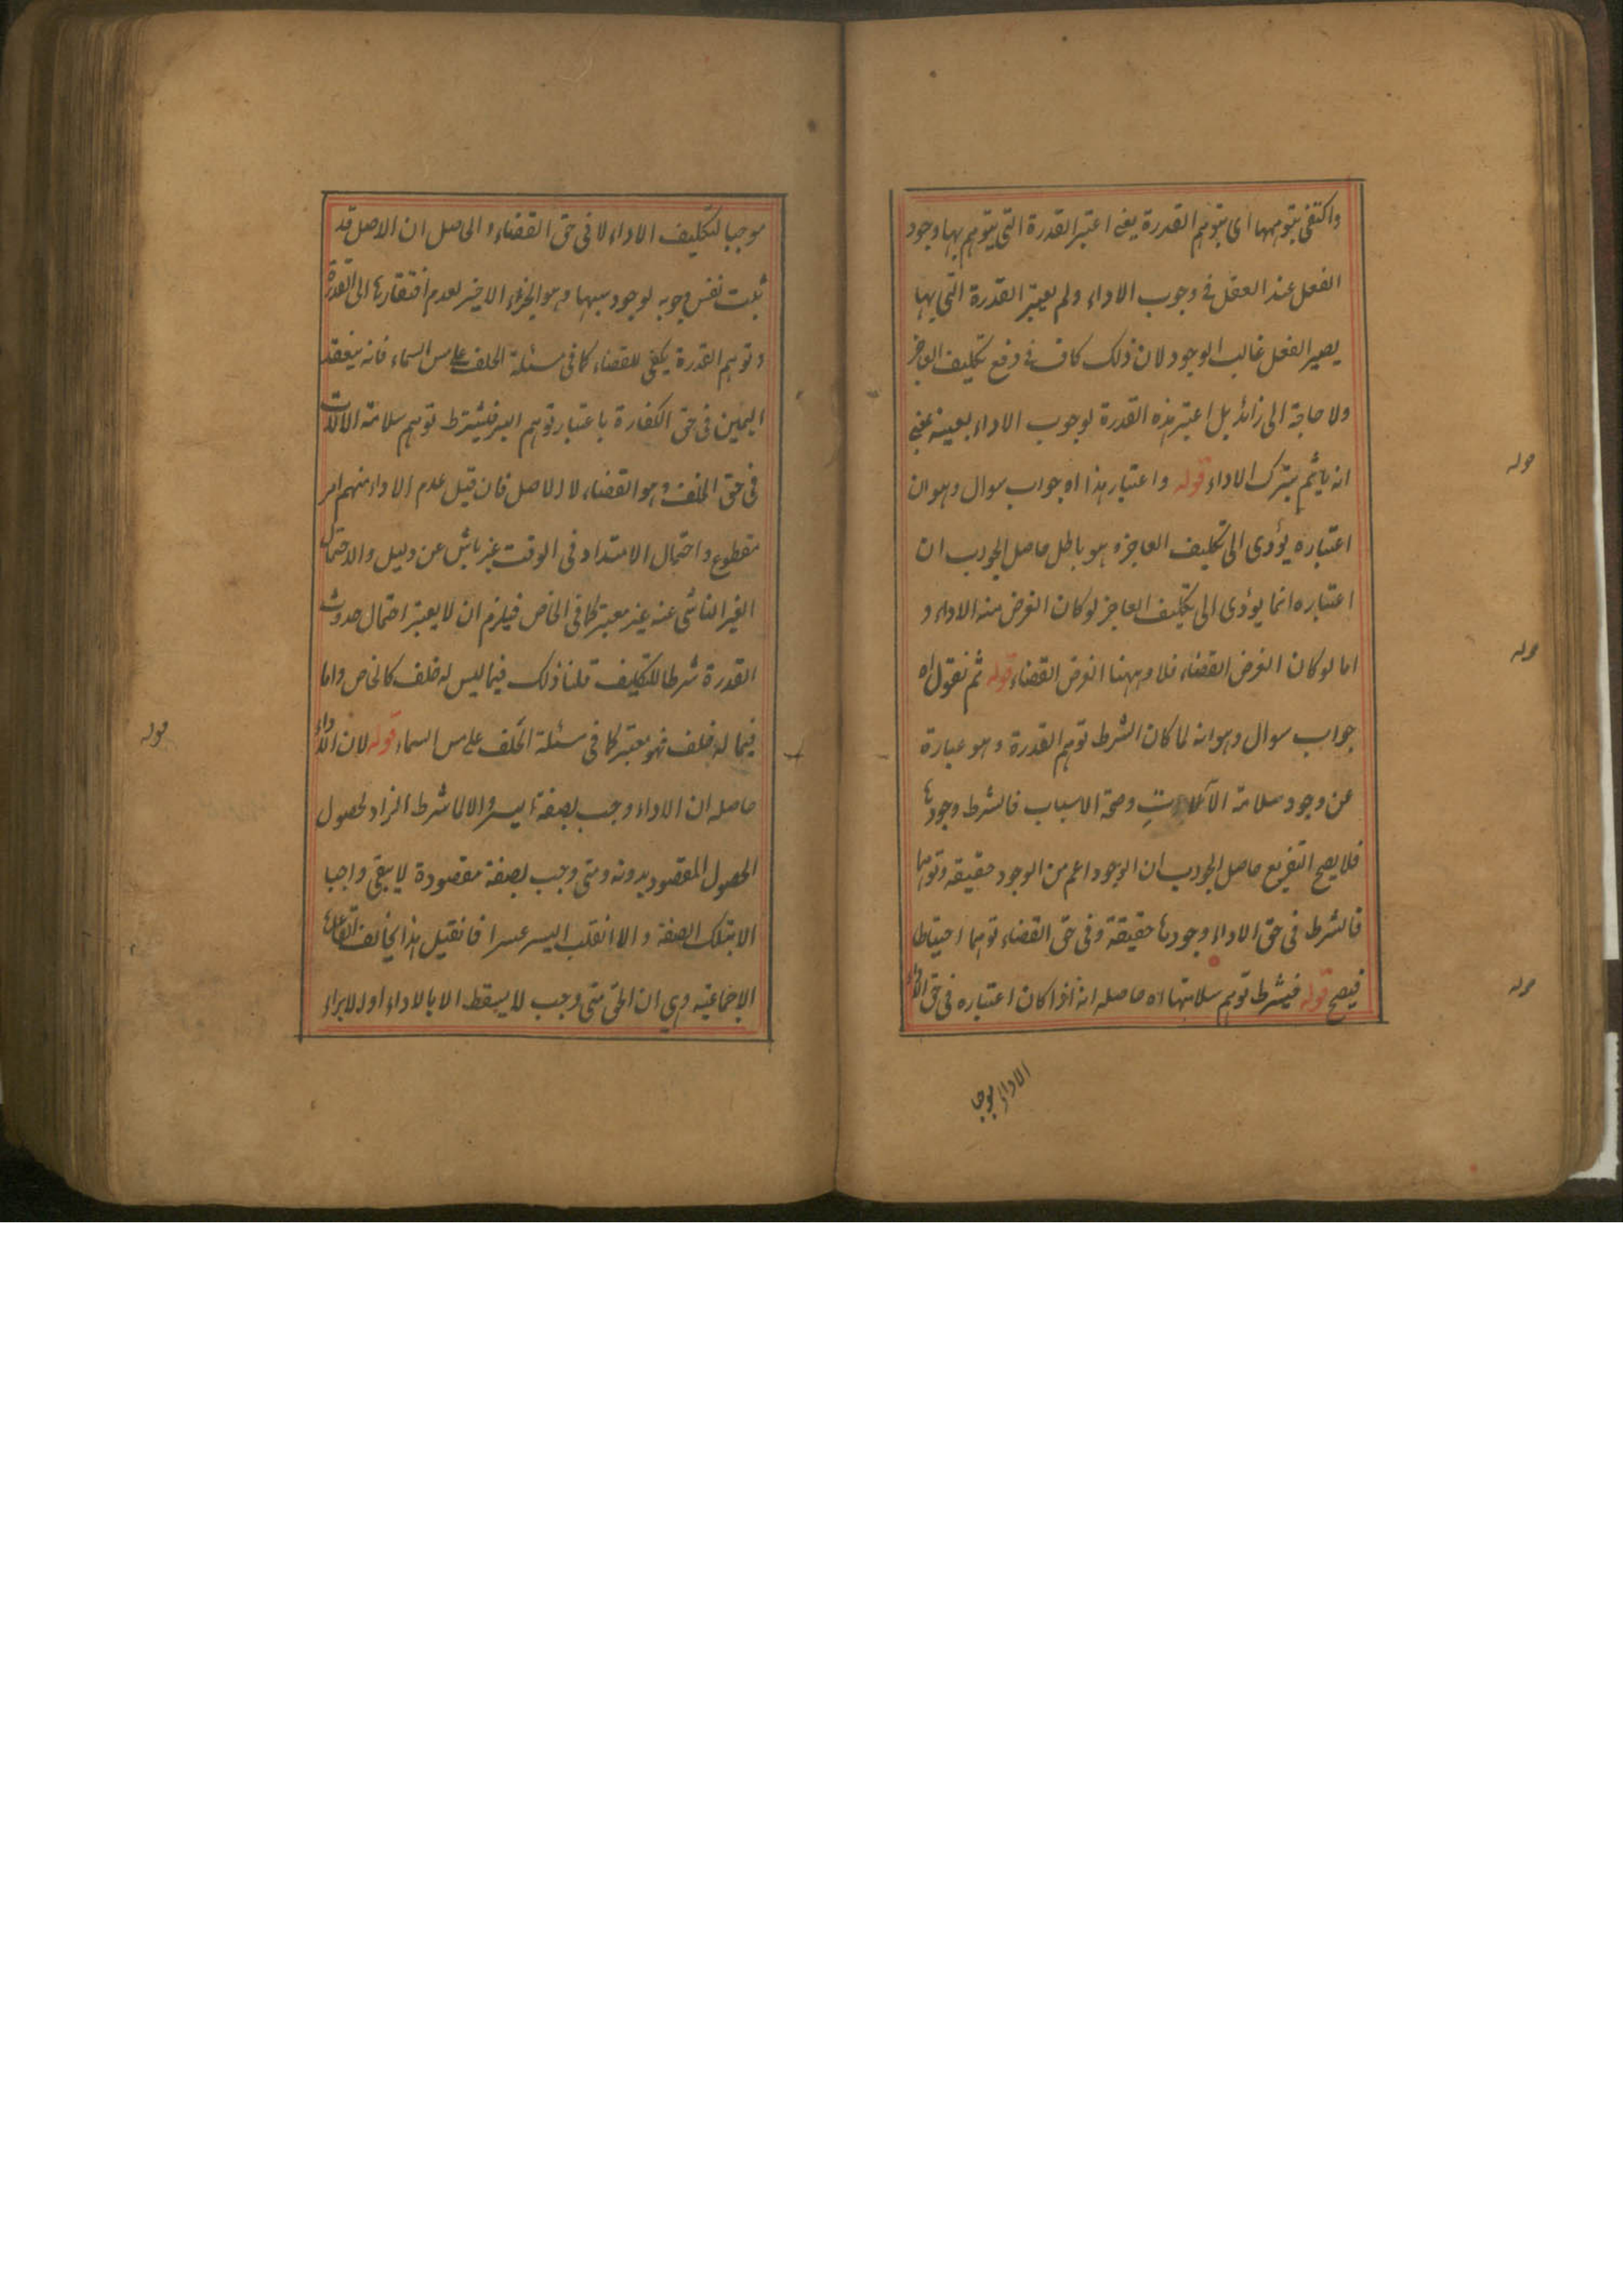 واكتفى بتوهمها اى بتوهم القدرة يعنى اعتبر القدرة التى يتوهم بها وجود
الفعل عند العقل فى وجوب الاداء ولم يعتبر القدرة التى بها
يصير الفعل غالب الوجود لان ذلك كاف فى دفع تكليف العاجز
ولا حاجة الى زائد بل اعتبر هذه القدرة لوجوب الاداء بعينه يعنى
انه ياثم بترك الاداء قوله واعتبار هذا اه جواب سوال وهو ان
اعتباره يؤدى الى تكليف العاجز وهو باطل حاصل الجواب ان
اعتباره انما يؤدى الى تكليف العاجز لو كان الغرض منه الاداء و
اما لو كان الغرض القضاء فلا وههنا الغرض القضاء قوله ثم نقول اه
جواب سوال وهو انه لما كان الشرط توهم القدرة وهو عبارة
عن وجود سلامة الآلات وصحة الاسباب فالشرط وجودها
فلا يصح التفريع حاصل الجواب ان الوجود اعم من الوجود حقيقة وتوهما
فالشرط فى حق الاداء وجودها حقيقة وفى حق القضاء توهما احتياطا
فيصح قوله فيشرط توهم سلامتها اه حاصله انه اذا كان اعتباره فى حق الاداء
الاداء موجبا
قوله
قوله
قوله
موجبا لتكليف الاداء لا فى حق القضاء والحاصل ان الاصل قد
ثبت نفس وجوبه لوجود سببها وهو الجزء الاخير لعدم افتقارها الى القدرة
وتوهم القدرة يكفى للقضاء كما فى مسئلة الحلف على مس السماء فانه ينعقد
اليمين فى حق الكفارة باعتبار توهم البر فيشترط توهم سلامة الالات
فى حق الخلف وهو القضاء لا للاصل فان قيل عدم الاداء منهم امر
مقطوع واحتمال الامتداد فى الوقت غير ناش عن دليل والاحتمال
الغير الناشى عنه غير معتبر كما فى الخاص فيلزم ان لا يعتبر احتمال حدوث
القدرة شرطا للتكليف قلنا ذلك فيما ليس له خلف كالخاص واما
فيما له خلف فهو معتبر كما فى مسئلة الحلف على مس السماء قوله لان الاداء
حاصله ان الاداء وجب بصفة اليسر والا لما شرط الزاد لحصول
الحصول المقصود بدونه ومتى وجب بصفة مقصودة لا يبقى واجبا
الا بتلك الصفة والا انقلب اليسر عسرا فان قيل هذا يخالف القاعدة
الاجماعية وهى ان الحق متى وجب لا يسقط الا بالاداء او الابراء
قوله